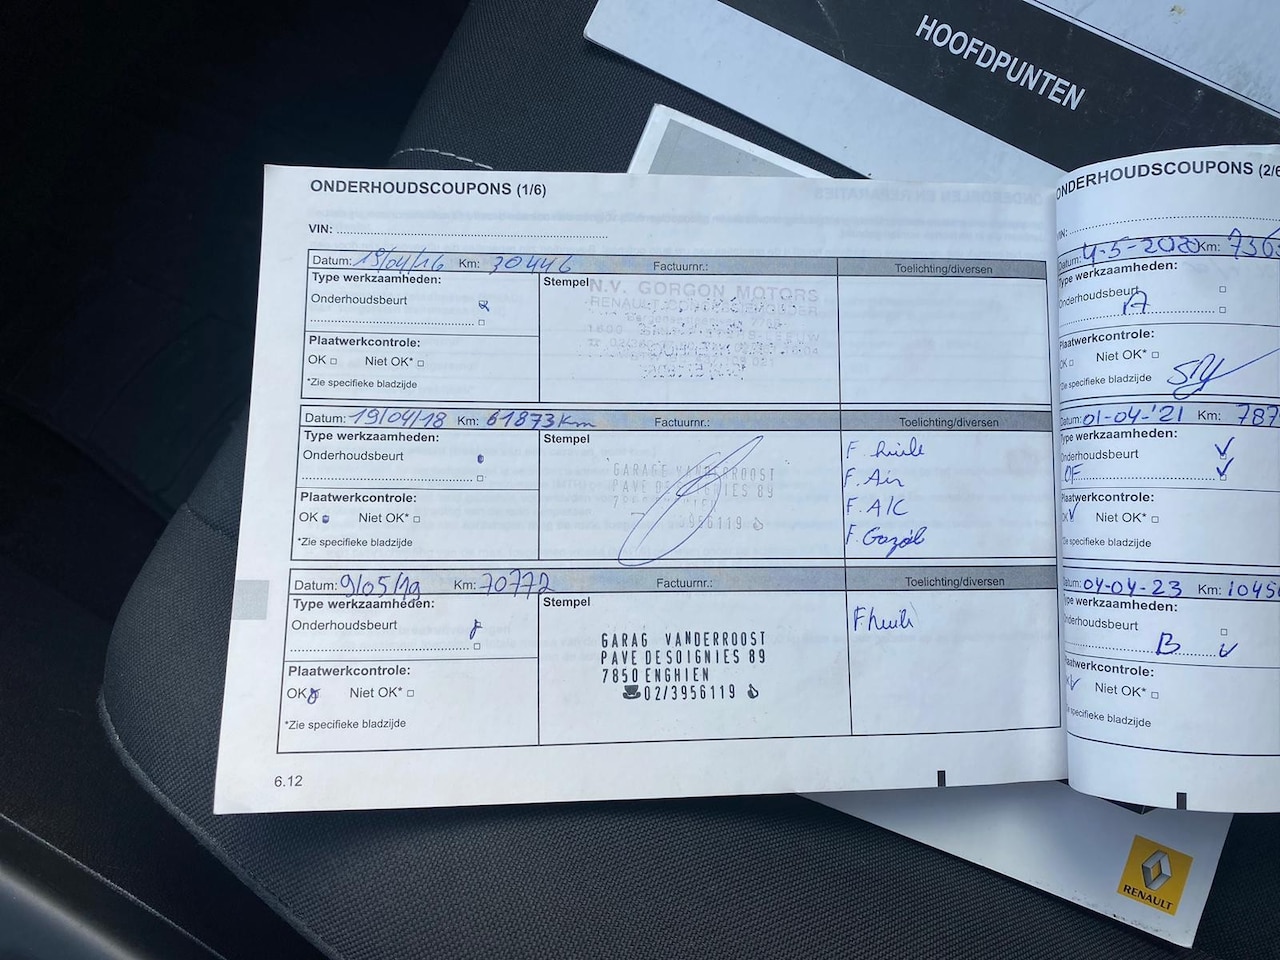 HOOFDPUNTEN
ONDERHOUDSCOUPONS (1/6)
VIN:
Datum: 19/04/16 Km: 30446 Factuurnr.: Toelichting/diversen
Type werkzaamheden: Stempel
N.V. GORGON MOTORS
Onderhoudsbeurt
Plaatwerkcontrole:
OK Niet OK*
*Zie specifieke bladzijde
Datum: 19/04/18 Km: 61873Km Factuurnr.: Toelichting/diversen
Type werkzaamheden: Stempel
Onderhoudsbeurt
GARAGE VANDERROOST
PAVE DESOIGNIES 89
3956119
F. huile
F. Air
F. A/C
F. Gazoil
Plaatwerkcontrole:
OK Niet OK*
*Zie specifieke bladzijde
Datum: 9/05/19 Km: 70772 Factuurnr.: Toelichting/diversen
Type werkzaamheden: Stempel
Onderhoudsbeurt
F huile
GARAG VANDERROOST
PAVE DESOIGNIES 89
7850 ENGHIEN
02/3956119
Plaatwerkcontrole:
OK Niet OK*
*Zie specifieke bladzijde
6.12
ONDERHOUDSCOUPONS (2/6
Datum: 4-5-2020 Km:
Type werkzaamheden:
Onderhoudsbeurt
A
Plaatwerkcontrole:
OK Niet OK*
*Zie specifieke bladzijde
Datum: 01-04-'21 Km: 787
Type werkzaamheden:
Onderhoudsbeurt
OF
Plaatwerkcontrole:
OK Niet OK*
*Zie specifieke bladzijde
Datum: 04-04-23 Km: 1045
Type werkzaamheden:
Onderhoudsbeurt
B
Plaatwerkcontrole:
OK Niet OK*
*Zie specifieke bladzijde
RENAULT